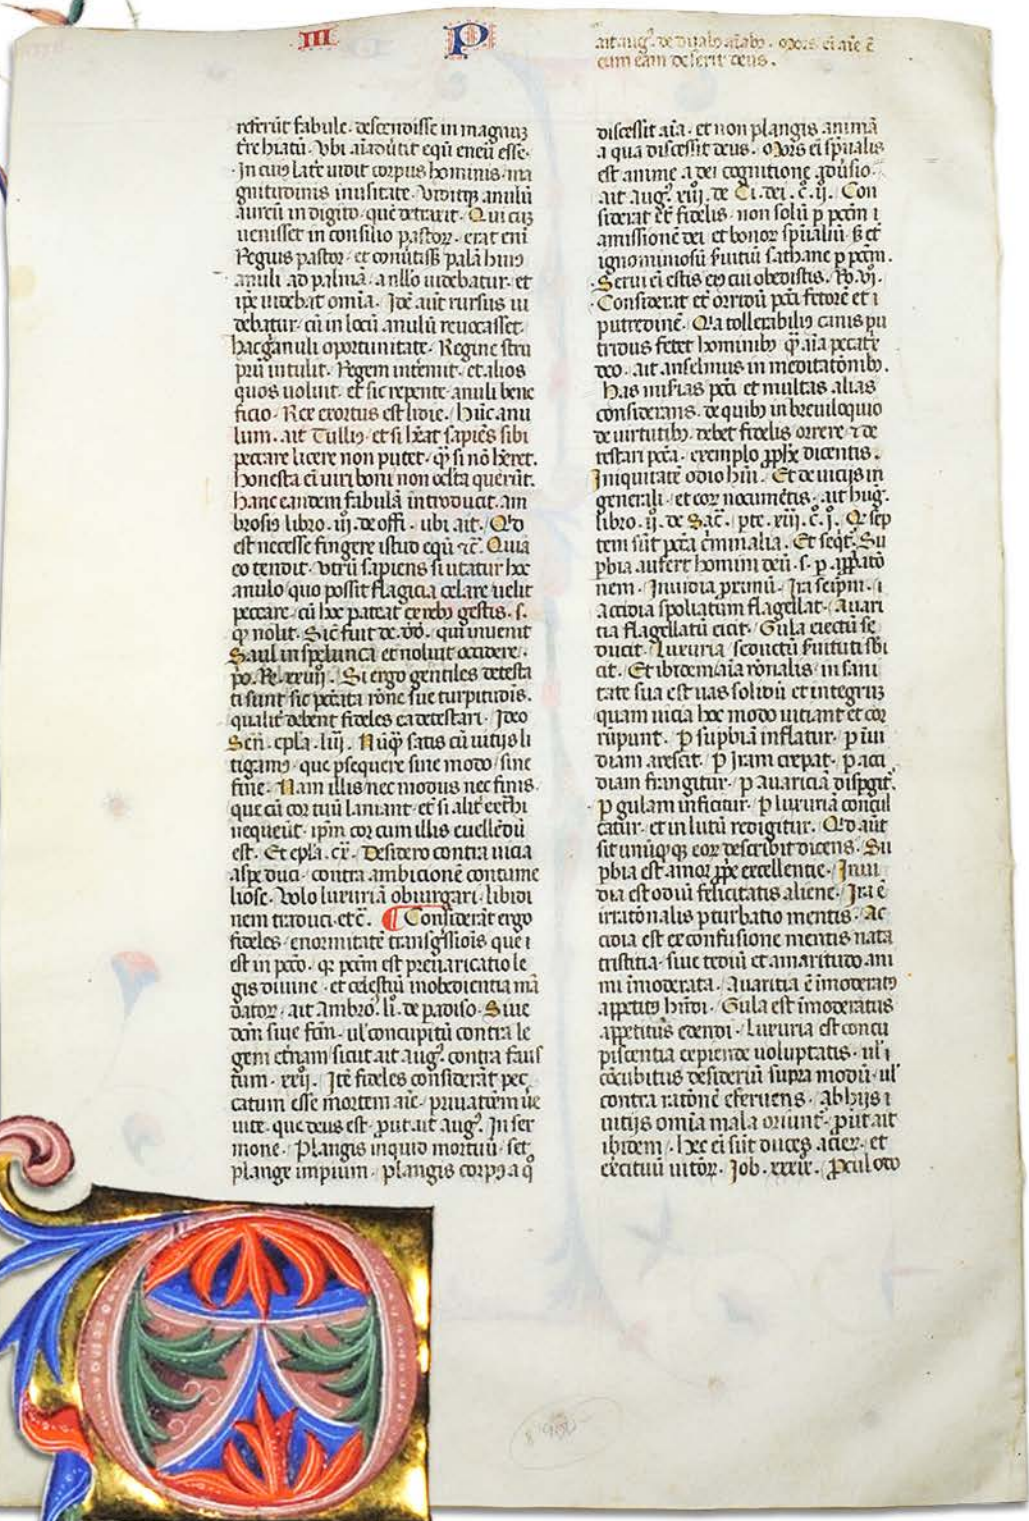 III P
ait aug᷒. de duab᷒ aīab᷒. mors eī aīe ē
cum eam deserit deus.
referūt fabule. descendisse in magnuꝫ
t̄re hiatū. Vbi aīaduūtit equū eneū esse.
In cui᷒ lat̄e uidit corpus hominis. ma
gnitudinis inusitate. Viditqꝫ anulū
aureū in digito. quē detraxit. Qui cuꝫ
uenisset in consilio pastoꝝ. erat enī
Regius pastor. et conūtiss palā hui᷒
anuli. ad palmā. a nllo uidebatur. et
ip̄e uidebat omīa. Idē aūt rursus ui
debatur. cū in locū anulū reuocasset.
hac ḡ anuli oportunitate. Regine stru
prū intulit. Regem intemit. et alios
quos uoluit. et sic repente. anuli bene
ficio. Rex exortus est lidie. Hūc anu
lum. ait Tulli᷒. et si hēat sapiēs sibi
peccare licere non putet. qꝫ si nō hēret.
honesta eī uiri boni non occlta querūt.
Hanc eandem fabulā introducit. am
brosi᷒ libro. iij. de offi. ubi ait. Qd
est necesse fingere istud equū ⁊c̄. Quia
eo tendit. utrū sapiens si utatur hoc
anulo quo possit flagicia celare uelit
peccare. cū hoc pateat gestis. s.
qꝫ nolit. Sic̄ fuit de. dd. qui inuenit
Saul in spelunca et noluit occidere.
po. Re. xxiiij. Si ergo gentiles detesta
ti sunt sic peccata rōne sue turpitudīs.
qualit̄ debent fideles ea detestari. Ideo
Sen̄. epl̄a. liij. Nūqꝫ satis cū uitijs li
tigam᷒. que ꝑsequere sine modo. sine
fine. Nam illis nec modus nec finis.
que cū cor tuū laniant. et si alit̄ extͥhi
nequeūt. ip̄m cor cum illis euellēdū
est. Et epl̄a. cx. Desidero contra uicia
aspe duci. contra ambicionē contume
liose. Volo luxuriā obiurgari. libidi
nem traduci. et c̄. ¶ Considerāt ergo
fideles. enormitatē transg̃ssiōis que ī
est in pc̄co. qꝫ pcc̄m est preuaricatio le
gis diuine. et celestiū inobedientia mā
datoꝝ. ait Ambro᷒. li. de paradiso. Siue
dc̄m siue fc̄m. ul̓ concupitū contra le
gem et̄nam sicut ait aug᷒. contra faus
tum. xxij. Itē fideles considerāt pec
catum esse mortem aīe. priuatēm ūe
uite. que deus est. put. ait aug᷒. In ser
mone. Plangis inquid mortuū. set
plange impium. plangis corp᷒ a q̊
discessit aīa. et non plangis animā
a qua discessit deus. Mors eī spūalis
est anime a dei cognitione
ait aug᷒. xiij. de Ci. dei. c̄. ij. Con
siderat et̄ fidelis. non solū ꝑ pcc̄m ī
amissionē dei. et bonoꝝ spūaliū. ꝫ et
ignominiosū ſuitiū sathane ꝑ pcc̄m.
Serui eī estis ei᷒ cui obedistis. Ro. vj.
Considerat et̄ orridū pcc̄i fetorē et ī
putredinē. Qia tollerabili᷒ canis pu
tridus fetet hominib᷒ qꝫ aīa peccat̄x
deo. ait anselmus in meditatōnib᷒.
Has mis̄ias pcc̄i et multas alias
considerans. de quib᷒ in breuiloquio
de uirtutib᷒. debet fidelis orrere ⁊ de
testari pcc̄a. exemplo ꝓphe dicentis.
Iniquitatē odio hūi. Et de uicijs in
generali. et eoꝝ nocumētis. ait hug᷒.
libro. ij. de Sac̄. pte. xiij. c̄. j. Qꝫ sep
tem sūt pcc̄a c̄minalia. Et seqt̄. Su
ꝑbia aufert homini deū. s. ꝑ
nem. Inuidia proximū. Ira seip̄m. i
Accidia spoliatum flagellat. Auari
tia flagellatū eicit. Gula eiectū se
ducit. Luxuria seductū ſuituti sbi
cit. Et ibidem aīa rōnalis. in sani
tate sua est uas solidū et integruꝫ
quam uicia hoc modo uitiant et cor
rūpunt. ꝑ suꝑbiā inflatur. ꝑ īui
diam arescit. ꝑ Iram crepat. ꝑ acci
diam frangitur. ꝑ auariciā dispgit̄.
ꝑ gulam inficitur. ꝑ luxuriā concul
catur. et in lutū redigitur. Qd aūt
sit unūqꝫqꝫ eoꝝ describit dicens. Su
ꝑbia est amor ꝓp̄e excellentie. Inui
dia est odiū felicitatis aliene. Ira ē
irratōnalis ꝑturbatio mentis. Ac
cidia est ex confusione mentis nata
tristitia. siue tediū et amaritudo ani
mi īmoderata. Auaritia ē īmoderat᷒
appetit᷒ hn̄di. Gula est īmoderatus
appetitus edendi. Luxuria est concu
piscentia expiende uoluptatis. ul̓ ī
cōcubitus desideriū supra modū. ul̓
contra ratōnē eferuens. Ab hijs ī
uitijs omīa mala oriunt̄. put ait
ibidem. hec eī sūt duces acieꝝ. et
ex̄cituū uitioꝝ. Job. xxxix. Pcul odo